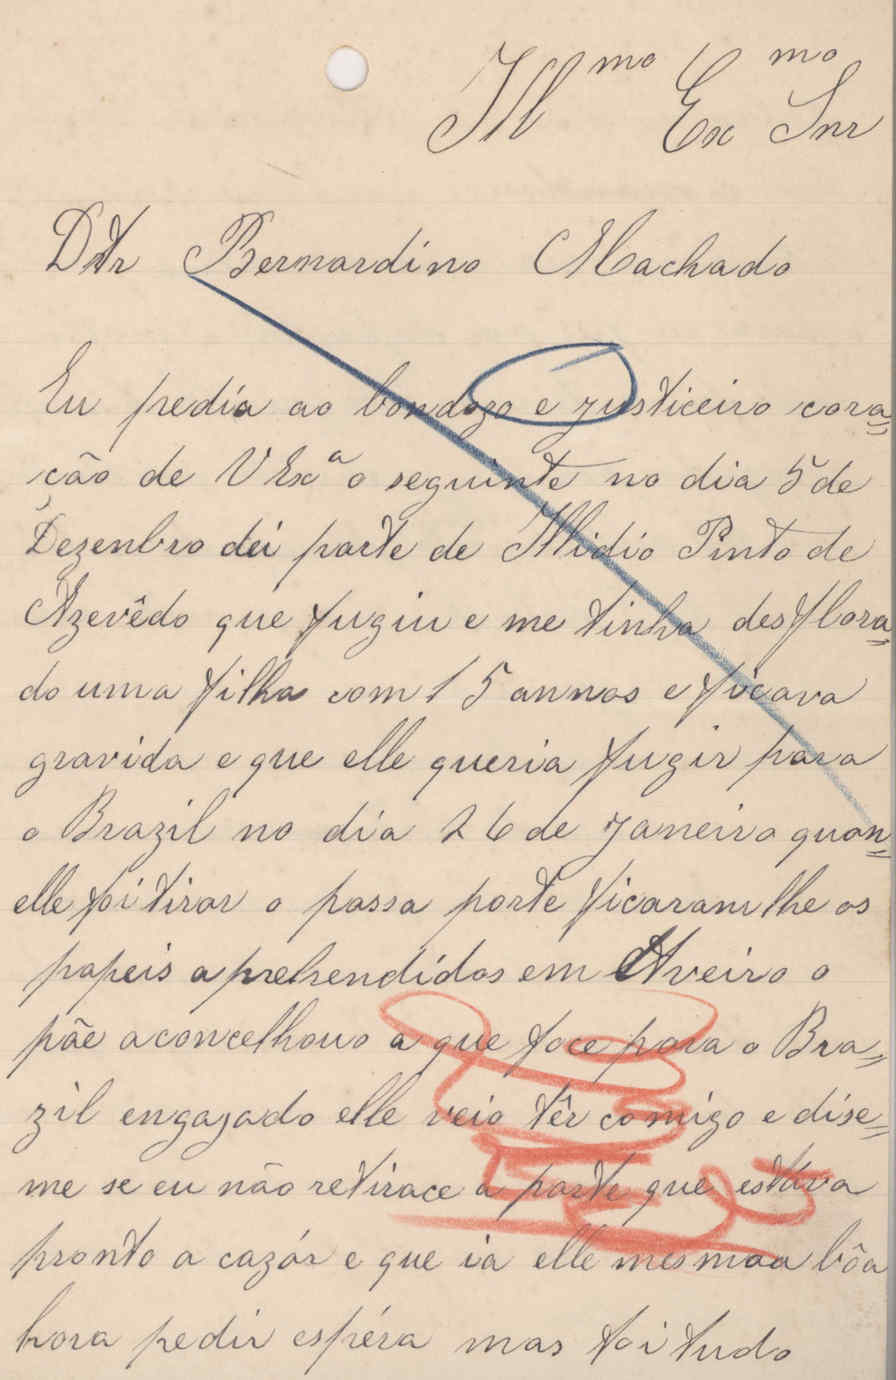 Illmo Exmo Snr
Dtr Bernardino Machado
Eu pedia ao bondozo e justiceiro cora=
ção de VExª o seguinte no dia 5 de
Dezenbro dei parte de Illidio Pinto de
Azevêdo que fugiu e me tinha desflora=
do uma filha com 15 annos e ficava
gravida e que elle queria fugir para
o Brazil no dia 26 de Janeiro quan=
elle foi tirar o passa porte ficaram lhe os
papeis aprehendidos em Aveiro o
pãe aconcelhouo a que foce para o Bra=
zil engajado elle veio têr comigo e dise=
me se eu não retirace a parte que estava
pronto a cazár e que ia elle mesmo a bôa
hora pedir espéra mas foi tudo